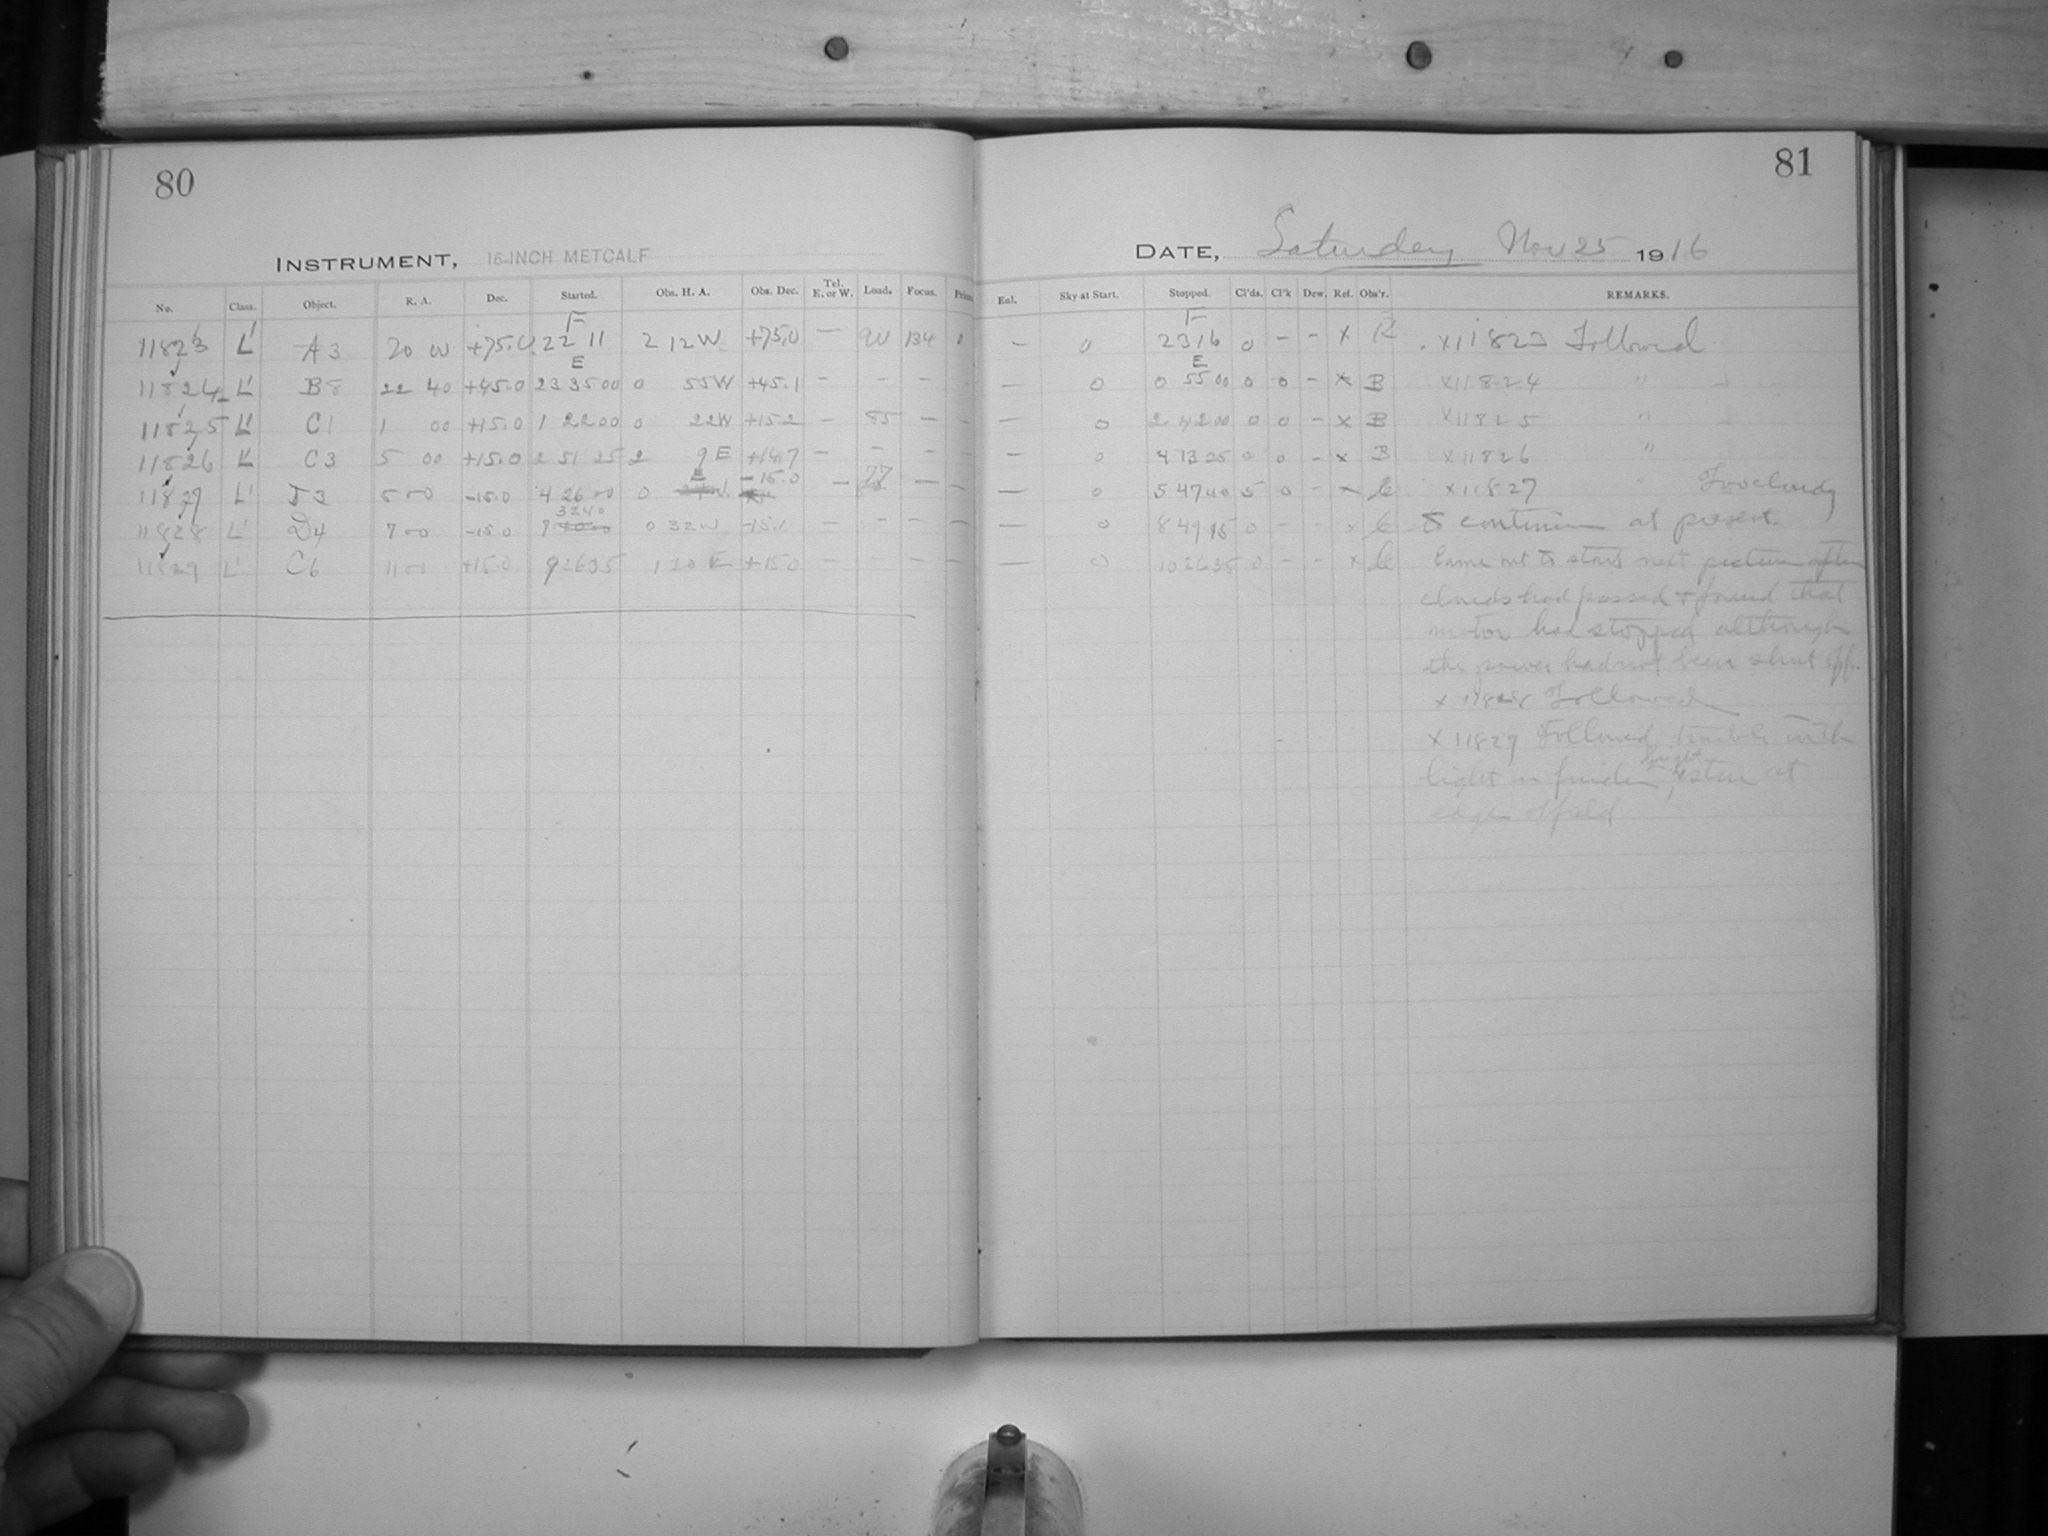 80
INSTRUMENT, 16-INCH METCALF
No. Class. Object. R. A. Dec. Started. Obs. H. A. Obs. Dec. Tel. E. or W. Load. Focus.
F
11823 L' A3 20 00 +75.0 22 11 2 12W +75.0 — 90 134
E
11824 L' B8 22 40 +45.0 23 35 00 0 55W +45.1 – – –
11825 L' C1 1 00 +15.0 1 22 00 0 22W +15.2 – 85 – –
11826 L' C3 5 00 +15.0 2 51 25 2 9E +14.7 – – – –
11827 L' D3 5 00 -15.0 4 26 00 0 E -15.0 – 77 – –
11828 L' D4 7 00 -15.0 32 40 0 32W -15.1 – – – –
11829 L' C6 11 00 +15.0 9 26 35 1 30 E +15.0 – – – –
81
DATE, Saturday Nov 25 1916
Enl. Sky at Start. Stopped. Cl'ds. Cl'k Dew. Ref. Obs'r. REMARKS.
F
– 0 23 16 0 – – x R x11823 Followed
E
— 0 0 55 00 0 0 – x B x11824 "
— 0 2 42 00 0 0 – x B x11825 "
— 0 4 13 25 0 0 – x B x11826 "
— 0 5 47 40 5 0 – x C x11827 " Too cloudy
— 0 8 49 45 0 – – x C to continue at present.
— 0 10 26 35 0 – – x C Came out to start next picture after
clouds had passed & found that
motor had stopped although
the power had not been shut off.
x 11828 Followed
x 11829 Followed, trouble with
light in finder, bright star at
edge of field